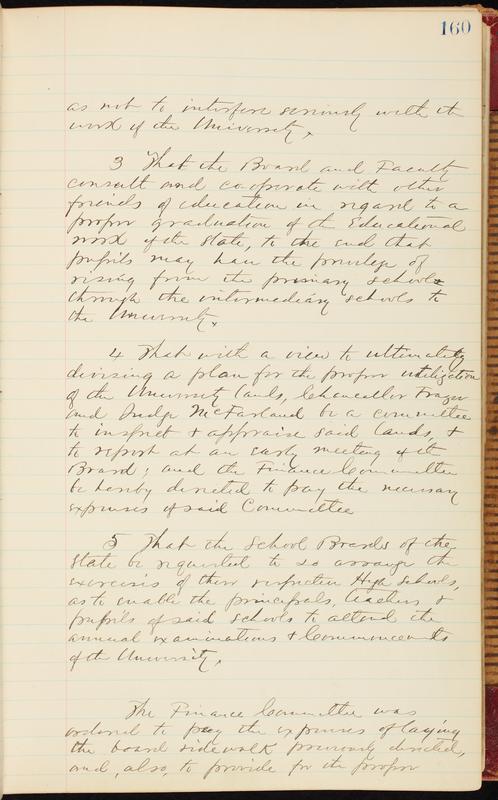 160
as not to interfere seriously with the
work of the University.
3 That the Board and Faculty
consult and co-operate with other
friends of education in regard to a
proper graduation of the Educational
work of the State, to the end that
pupils may have the privilege of
rising from the primary schools
through the intermediary schools to
the University.
4 That with a view to ultimately
devising a plan for the proper utilization
of the University lands, Chancellor Frazer
and Judge McFarland be a committee
to inspect & appraise said lands, &
to report at an early meeting of the
Board; and the Finance Committee
be hereby directed to pay the necessary
expenses of said Committee
5 That the School Boards of the
State be requested to so arrange the
exercises of their respective High Schools,
as to enable the principals, teachers &
pupils of said schools to attend the
annual examinations & Commencements
of the University.
The Finance Committee was
ordered to pay the expenses of laying
the board sidewalk previously directed,
and, also, to provide for the proper